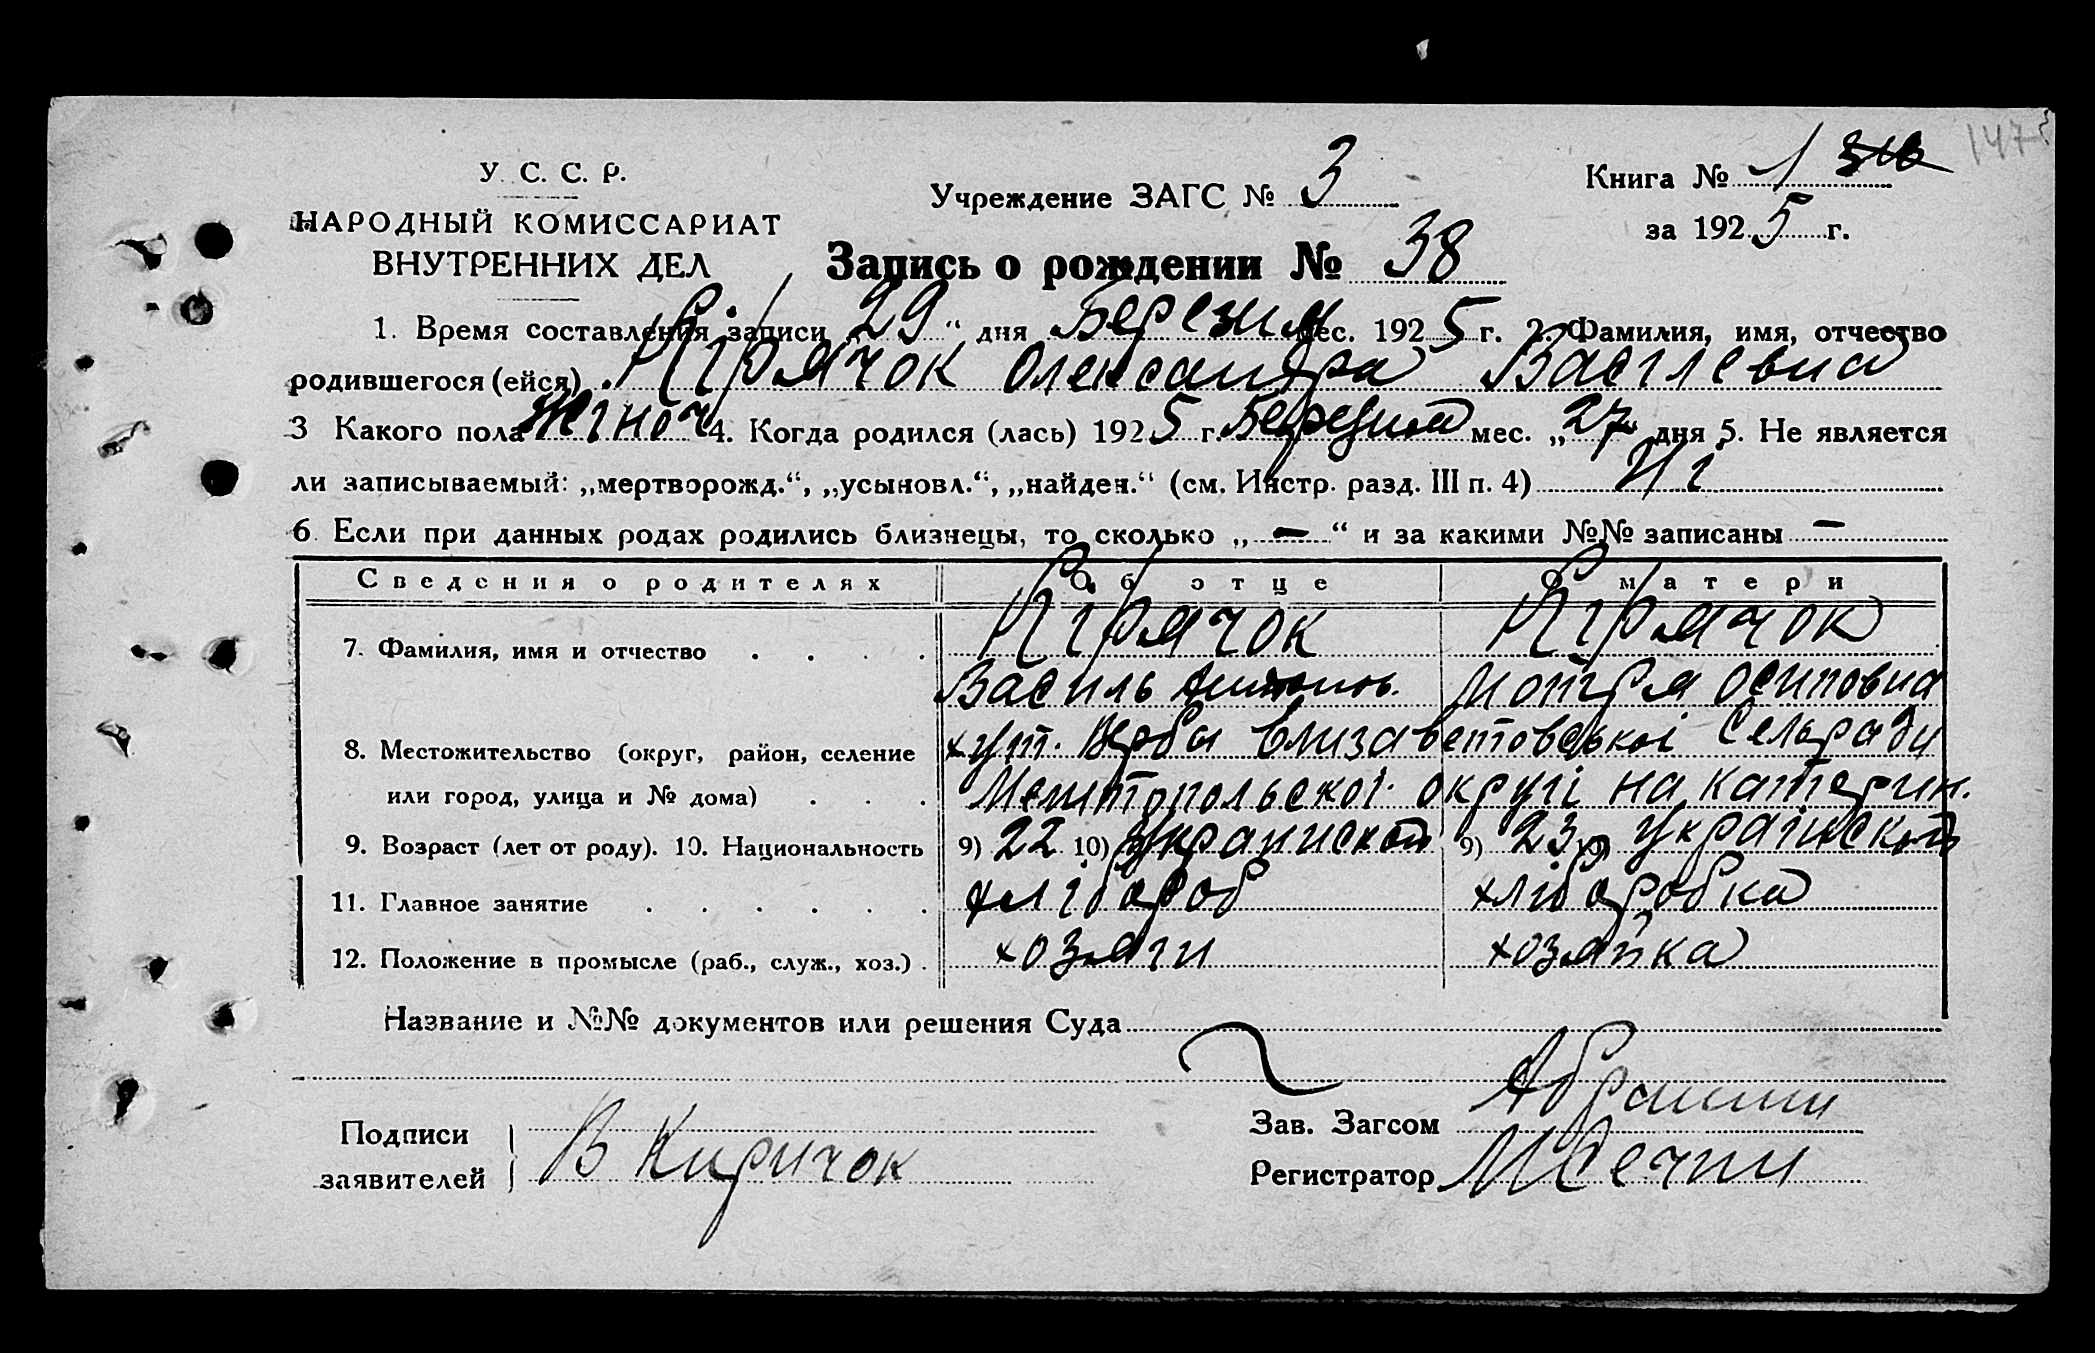 147
У. С. С. Р.
НАРОДНЫЙ КОМИССАРИАТ
ВНУТРЕННИХ ДЕЛ
Учреждение ЗАГС № 3
Книга № 1
за 1925 г.
Запись о рождении № 38
1. Время составления записи „29“ дня Березня мес. 1925 г. 2. Фамилия, имя, отчество
родившегося (ейся) Кірячок Олександра Васілевна
3 Какого пола жіноч 4. Когда родился (лась) 1925 г. Березня мес. „27“ дня 5. Не является
ли записываемый: „мертворожд.“, „усыновл.“, „найден.“ (см. Инстр. разд. III п. 4) Ні
6. Если при данных родах родились близнецы, то сколько „—“ и за какими №№ записаны —
Сведения о родителях Об отце О матери
7. Фамилия, имя и отчество Кірячок Кірячок
Василь Мотря Осиповна
8. Местожительство (округ, район, селение хут. Верба Елизаветовської Сельради
или город, улица и № дома) Мелитопольскоі округі на Катерин.
9. Возраст (лет от роду). 10. Национальность 9) 22 10) 9) 23
11. Главное занятие хлібороб хліборобка
12. Положение в промысле (раб., служ., хоз.) хозяін хозяйка
Название и №№ документов или решения Суда
Подписи
заявителей В Киричок
Зав. Загсом
Регистратор